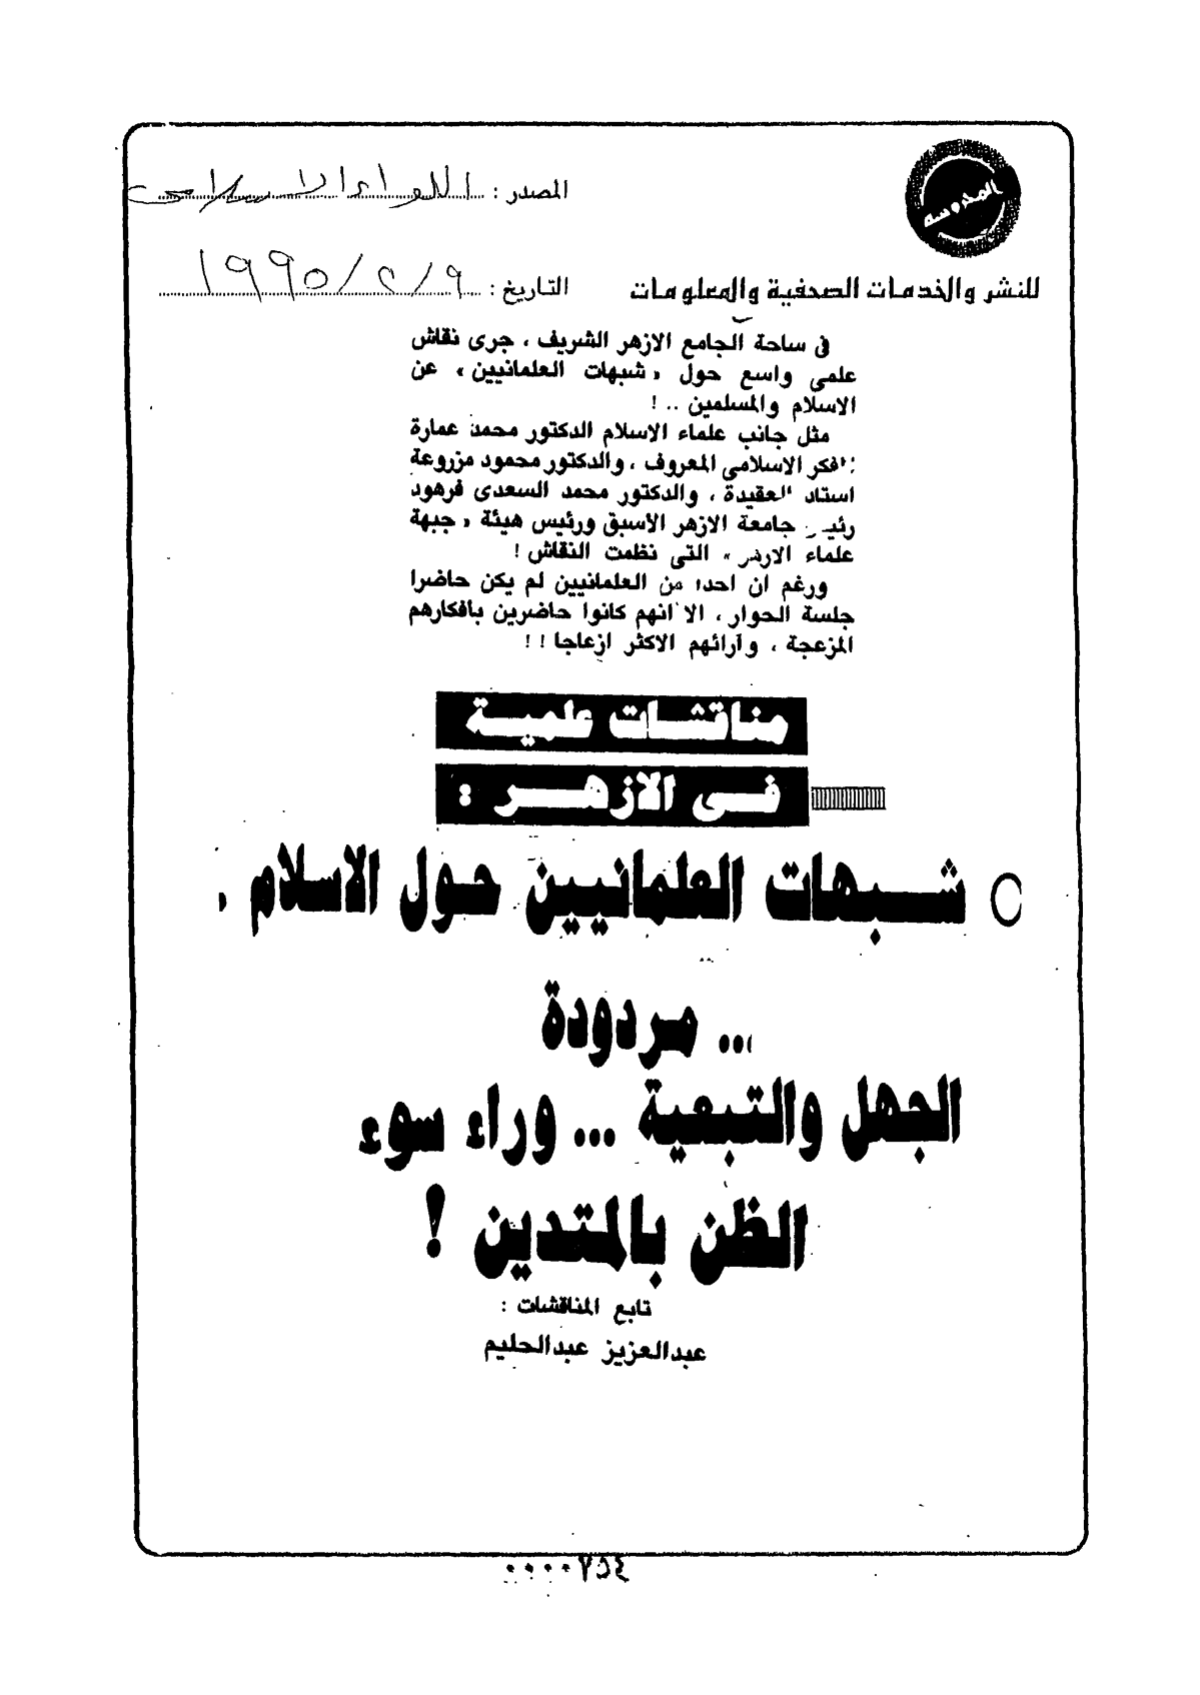 المصدر : اللواء الاسلامى
المحروسة
التاريخ : ١٩٩٥/٢/٩
للنشر والخدمات الصحفية والمعلومات
فى ساحة الجامع الازهر الشريف ، جرى نقاش
علمى واسع حول « شبهات العلمانيين » عن
الاسلام والمسلمين .. !
مثل جانب علماء الاسلام الدكتور محمد عمارة
المفكر الاسلامى المعروف ، والدكتور محمود مزروعة
استاذ العقيدة ، والدكتور محمد السعدى فرهود
رئيس جامعة الازهر الاسبق ورئيس هيئة « جبهة
علماء الازهر » التى نظمت النقاش !
ورغم ان احدا من العلمانيين لم يكن حاضرا
جلسة الحوار ، الا انهم كانوا حاضرين بأفكارهم
المزعجة ، وآرائهم الاكثر ازعاجا ! !
مناقشات علمية
فى الازهر :
○ شبهات العلمانيين حول الاسلام .
... مردودة
الجهل والتبعية ... وراء سوء
الظن بالمتدين !
تابع المناقشات :
عبدالعزيز عبدالحليم
٠٠٠٠٢٥٤